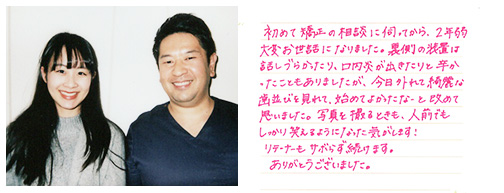 初めて矯正の相談に伺ってから、2年弱
大変お世話になりました。裏側の装置は
話しづらかったり、口内炎が出きたりと辛か
ったこともありましたが、今日外れて綺麗な
歯並びを見れて、始めてよかったなーと改めて
思いました。写真を撮るときも、人前でも
しっかり笑えるようになった気がします!
リテーナーもサボらず続けます。
ありがとうございました。